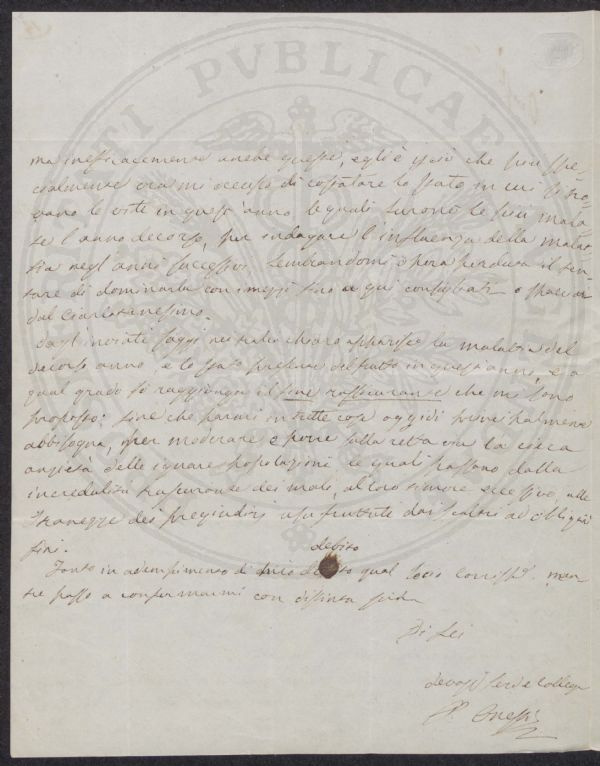 PVBLICAE
ma inefficacemente anche questi, egli è perciò che più spe-
cialmente ora mi occupo di constatare lo stato, in cui si tro-
vano le viti in quest'anno le quali furono le più mala-
te l'anno decorso, per indagare l'influenza della malat-
tia negl'anni successivi sembrandomi opera perduta il ten-
tare di dominarla con i mezzi sino a qui consigliati o spacciati
dal Ciarlatanesimo.
Dagli inviati saggi nei tralci chiaro apparisce la malattia del
decorso anno, e lo stato presente del frutto in quest'anno, e a
qual grado si raggiunga il fine rassicurante che mi sono
proposto: fine che parmi in tutte cose oggidì principalmente
abbisogna, per moderare e porre sulla retta via la cieca
ansietà delle ignare popolazioni le quali passano dalla
incredulità trascurante dei mali, al loro timore eccessivo, alle
stranezze dei pregiudizj usufruttate dai scaltri ad obliqui
fini.
debito
Tanto in adempimento di mio qual Socio Corrisp. men-
tre passo a confermarmi con distinta stima
Di Lei
devotis. Serv e Collega